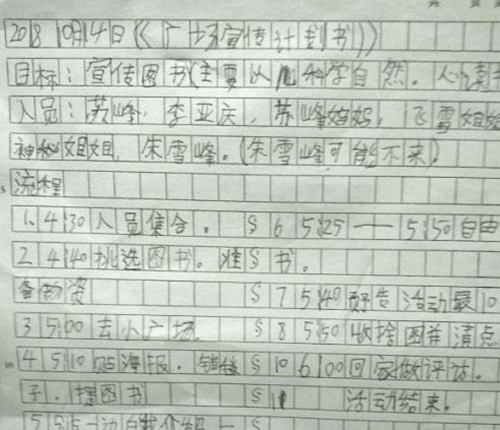 2018 10月14日《广场宣传计划书》
目标：宣传图书(主要以儿科学自然。
人员：苏峰，李亚庆，苏峰妈妈，飞雪姐姐
神秘姐姐，朱雪峰。(朱雪峰可能不来)
流程
1、4:30人员集合。 § 6 5:25——5:50自由
2 4:40挑选图书。准 § 书。
备物资 § 7 5:40 预告活动最10
3 5:00去小广场 § 8 5:50收拾图书清点
4 5:10贴海报。铺毯 § 10 6:00回家做评估。
子。摆图书 § 11 活动结束。
5 5:15 边自我介绍